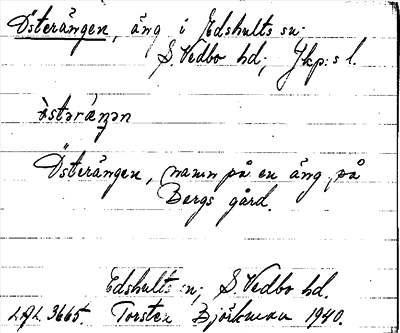 Österängen, äng i Edshults sn.
S. Vedbo hd, Jkp:s l.
Österängen, namn på en äng på
Bergs gård.
Edshults sn, S. Vedbo hd.
LAL. 3665. Torsten Björkman 1940.